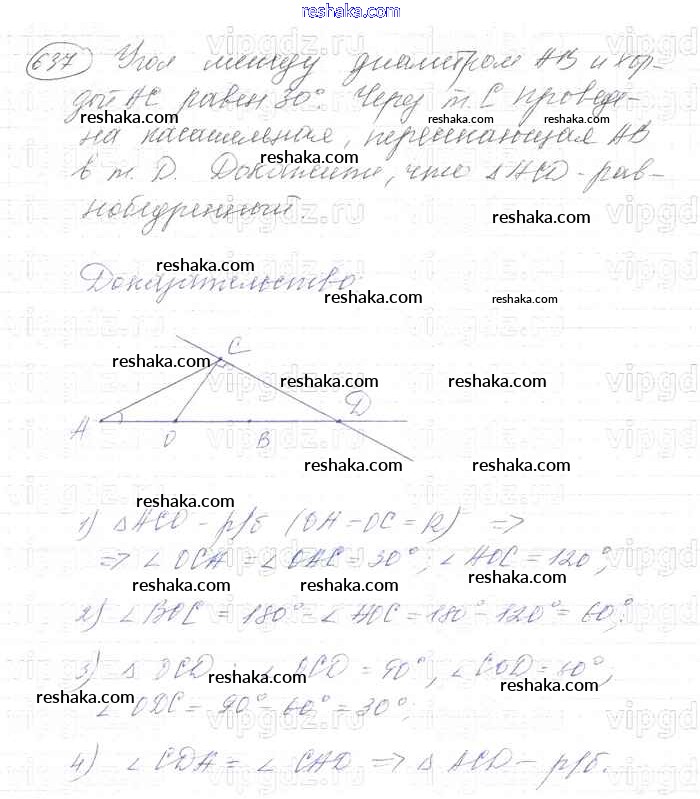 reshaka.com
637 Угол между диаметром AB и хор-
дой AC равен 30°. Через т. C проведе-
на касательная, пересекающая AB
в т. D. Докажите, что △ACD - рав-
нобедренный.
Доказательство
C
A O B D
1) △ACO - р/б (OA = OC = R) =>
=> ∠OCA = ∠OAC = 30°; ∠AOC = 120°;
2) ∠BOC = 180° - ∠AOC = 180° - 120° = 60°;
3) △OCD: ∠OCD = 90°, ∠COD = 60°;
∠ODC = 90° - 60° = 30°;
4) ∠CDA = ∠CAD => △ACD - р/б.